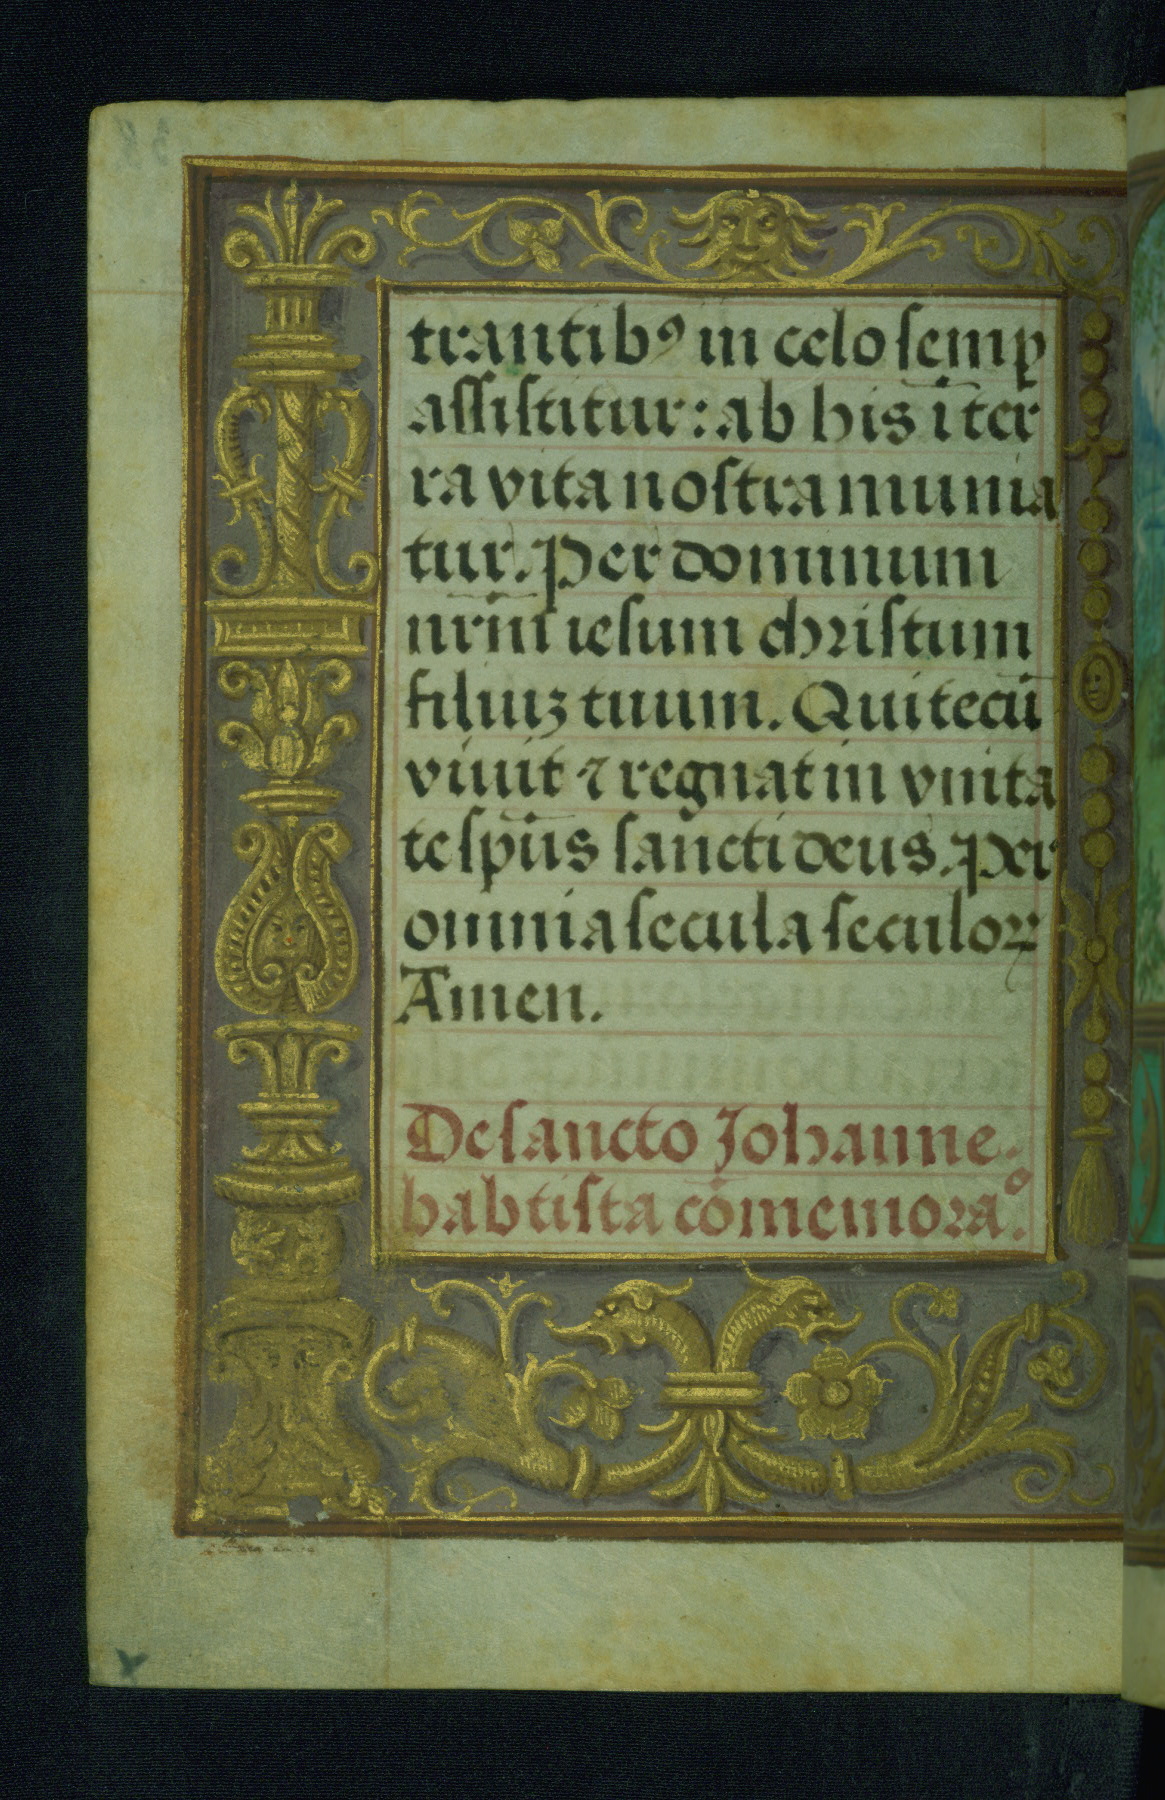 trantibꝰ in celo semꝑ
assistitur: ab his ī ter
ra vita nostra munia
tur. Per dominum
nr̄m iesum christum
filiuꝫ tuum. Qui tecū
viuit ⁊ regnat in vnita
te sp̄us sancti deus. Per
omnia secula seculoꝝ
Amen.
De sancto Johanne
babtista cōmemoraᵒ.